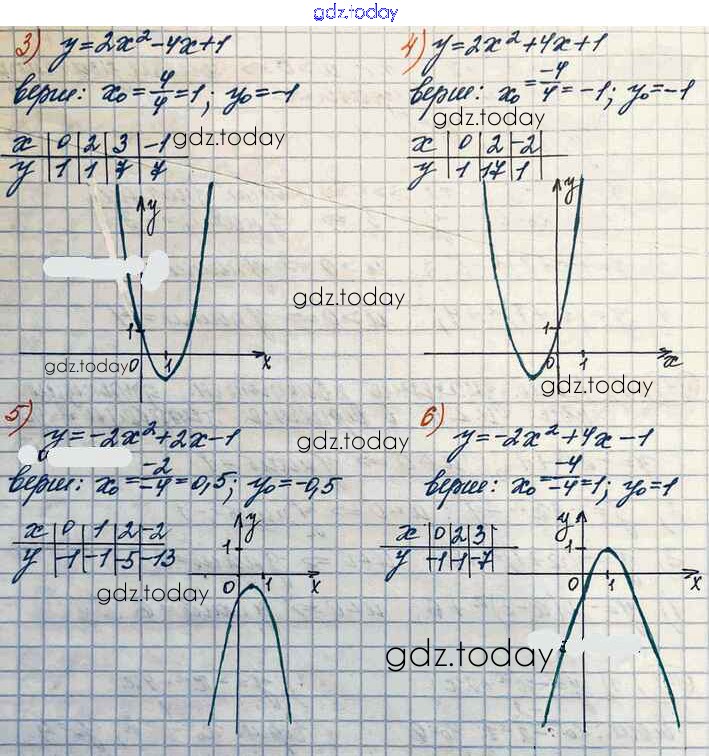 gdz.today
3) y=2x²-4x+1
верш: x₀=4/4=1; y₀=-1
x | 0 | 2 | 3 | -1
y | 1 | 1 | 7 | 7
gdz.today
y
1
0
1
x
gdz.today
gdz.today
4) y=2x²+4x+1
верш: x₀=-4/4=-1; y₀=-1
gdz.today
x | 0 | 2 | -2
y | 1 | 17 | 1
y
1
0
1
x
gdz.today
5) y=-2x²+2x-1
верш: x₀=-2/-4=0,5; y₀=-0,5
gdz.today
x | 0 | 1 | 2 | -2
y | -1 | -1 | -5 | -13
y
1
0
1
x
gdz.today
6) y=-2x²+4x-1
верш: x₀=-4/-4=1; y₀=1
x | 0 | 2 | 3
y | -1 | -1 | -7
y
1
0
1
x
gdz.today